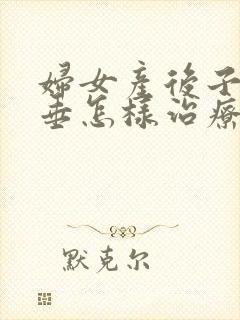 婦女產後子
垂怎樣治療
默克尔